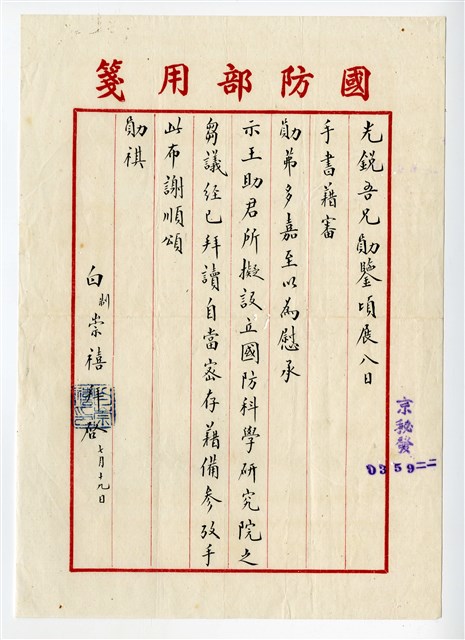 國防部用箋
光銳吾兄勛鑒頃展八日
手書藉審
勛苐多嘉至以為慰承
示王助君所擬設立國防科學研究院之
芻議經已拜讀自當密存藉備參攷手
此布謝順頌
勛祺
白制崇禧拜啟七月十九日
京秘發
0359二二